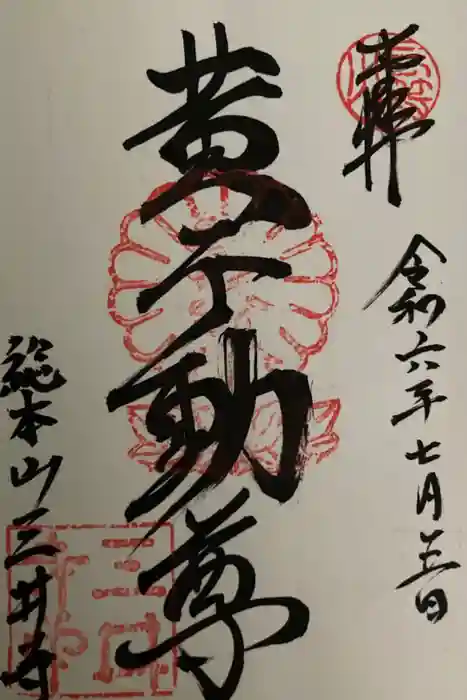 奉拝
令和六年七月十三日
黄不動尊
総本山三井寺